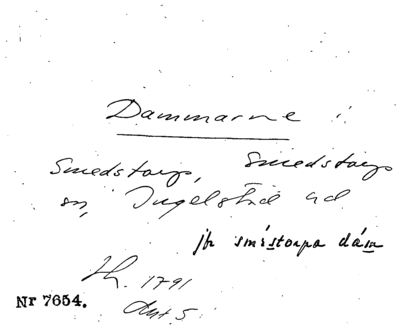 Dammarne :
Smedstorp, Smedstorps
sn, Ingelstad hd
jfr smistorpa dám
Lh. 1791
Akt 5
Nr 7654.